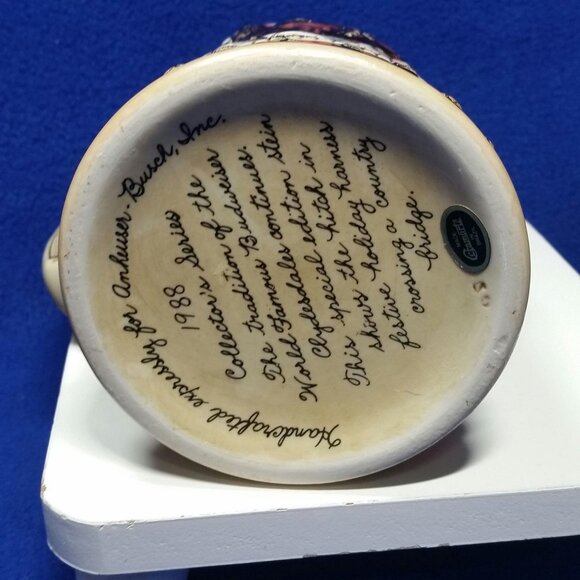 Handcrafted expressly for Anheuser-Busch, Inc.
1988
Collector's Series
The tradition of the
World Famous Budweiser
Clydesdales continues.
This special edition stein
shows the hitch in
festive holiday harness
crossing a country
bridge.
Ceramarte
50